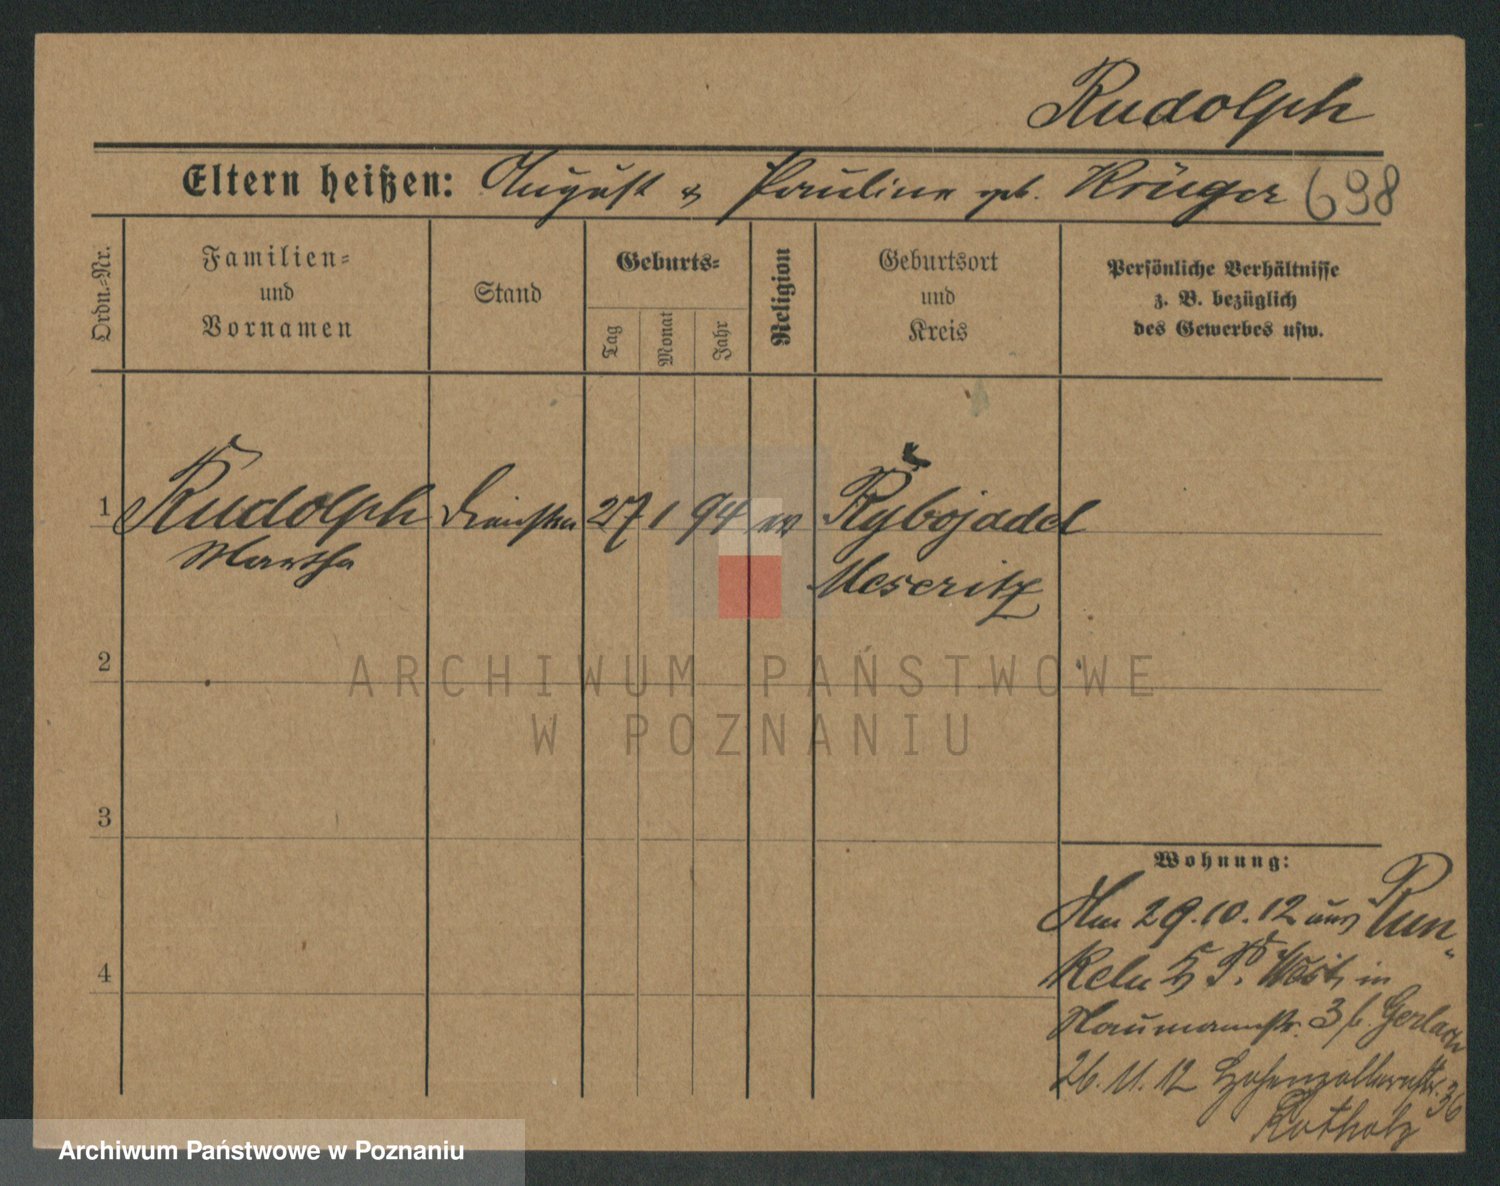 Rudolph
Eltern heißen: August & Pauline geb. Krüger 698
Ordn.-Nr.
Familien-
und
Vornamen
Stand
Geburts-
Tag
Monat
Jahr
Religion
Geburtsort
und
Kreis
Persönliche Verhältnisse
z. B. bezüglich
des Gewerbes usw.
1 Rudolph 27 1 94 Rybojadel
Martha Meseritz
2
3
4
Wohnung:
Am 29.10.12 aus Run-
keln in
Naumannstr. 3 b. Gerlach
26.11.12 Hohenzollernstr. 36
Rotholz
ARCHIWUM PAŃSTWOWE
W POZNANIU
Archiwum Państwowe w Poznaniu